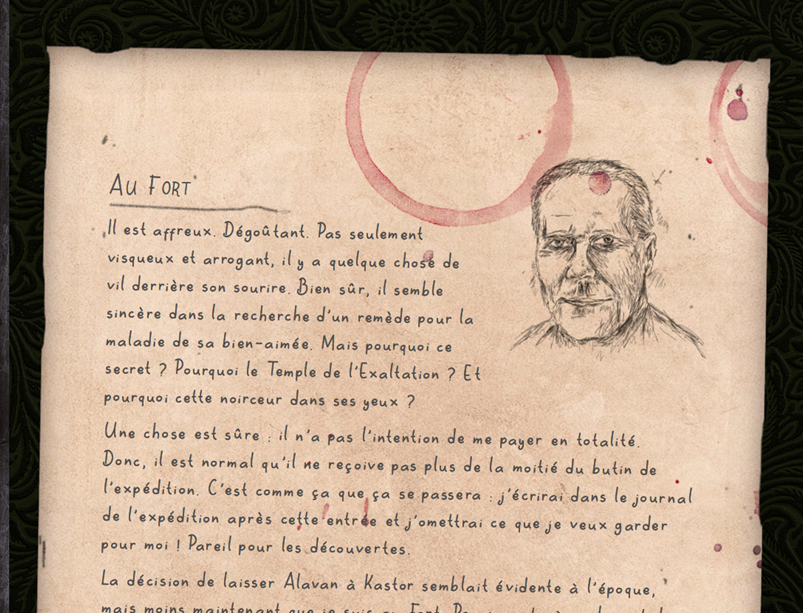 Au Fort
Il est affreux. Dégoûtant. Pas seulement
visqueux et arrogant, il y a quelque chose de
vil derrière son sourire. Bien sûr, il semble
sincère dans la recherche d'un remède pour la
maladie de sa bien-aimée. Mais pourquoi ce
secret ? Pourquoi le Temple de l'Exaltation ? Et
pourquoi cette noirceur dans ses yeux ?
Une chose est sûre : il n'a pas l'intention de me payer en totalité.
Donc, il est normal qu'il ne reçoive pas plus de la moitié du butin de
l'expédition. C'est comme ça que ça se passera : j'écrirai dans le journal
de l'expédition après cette entrée et j'omettrai ce que je veux garder
pour moi ! Pareil pour les découvertes.
La décision de laisser Alavan à Kastor semblait évidente à l'époque,
mais moins maintenant que je suis au Fort.